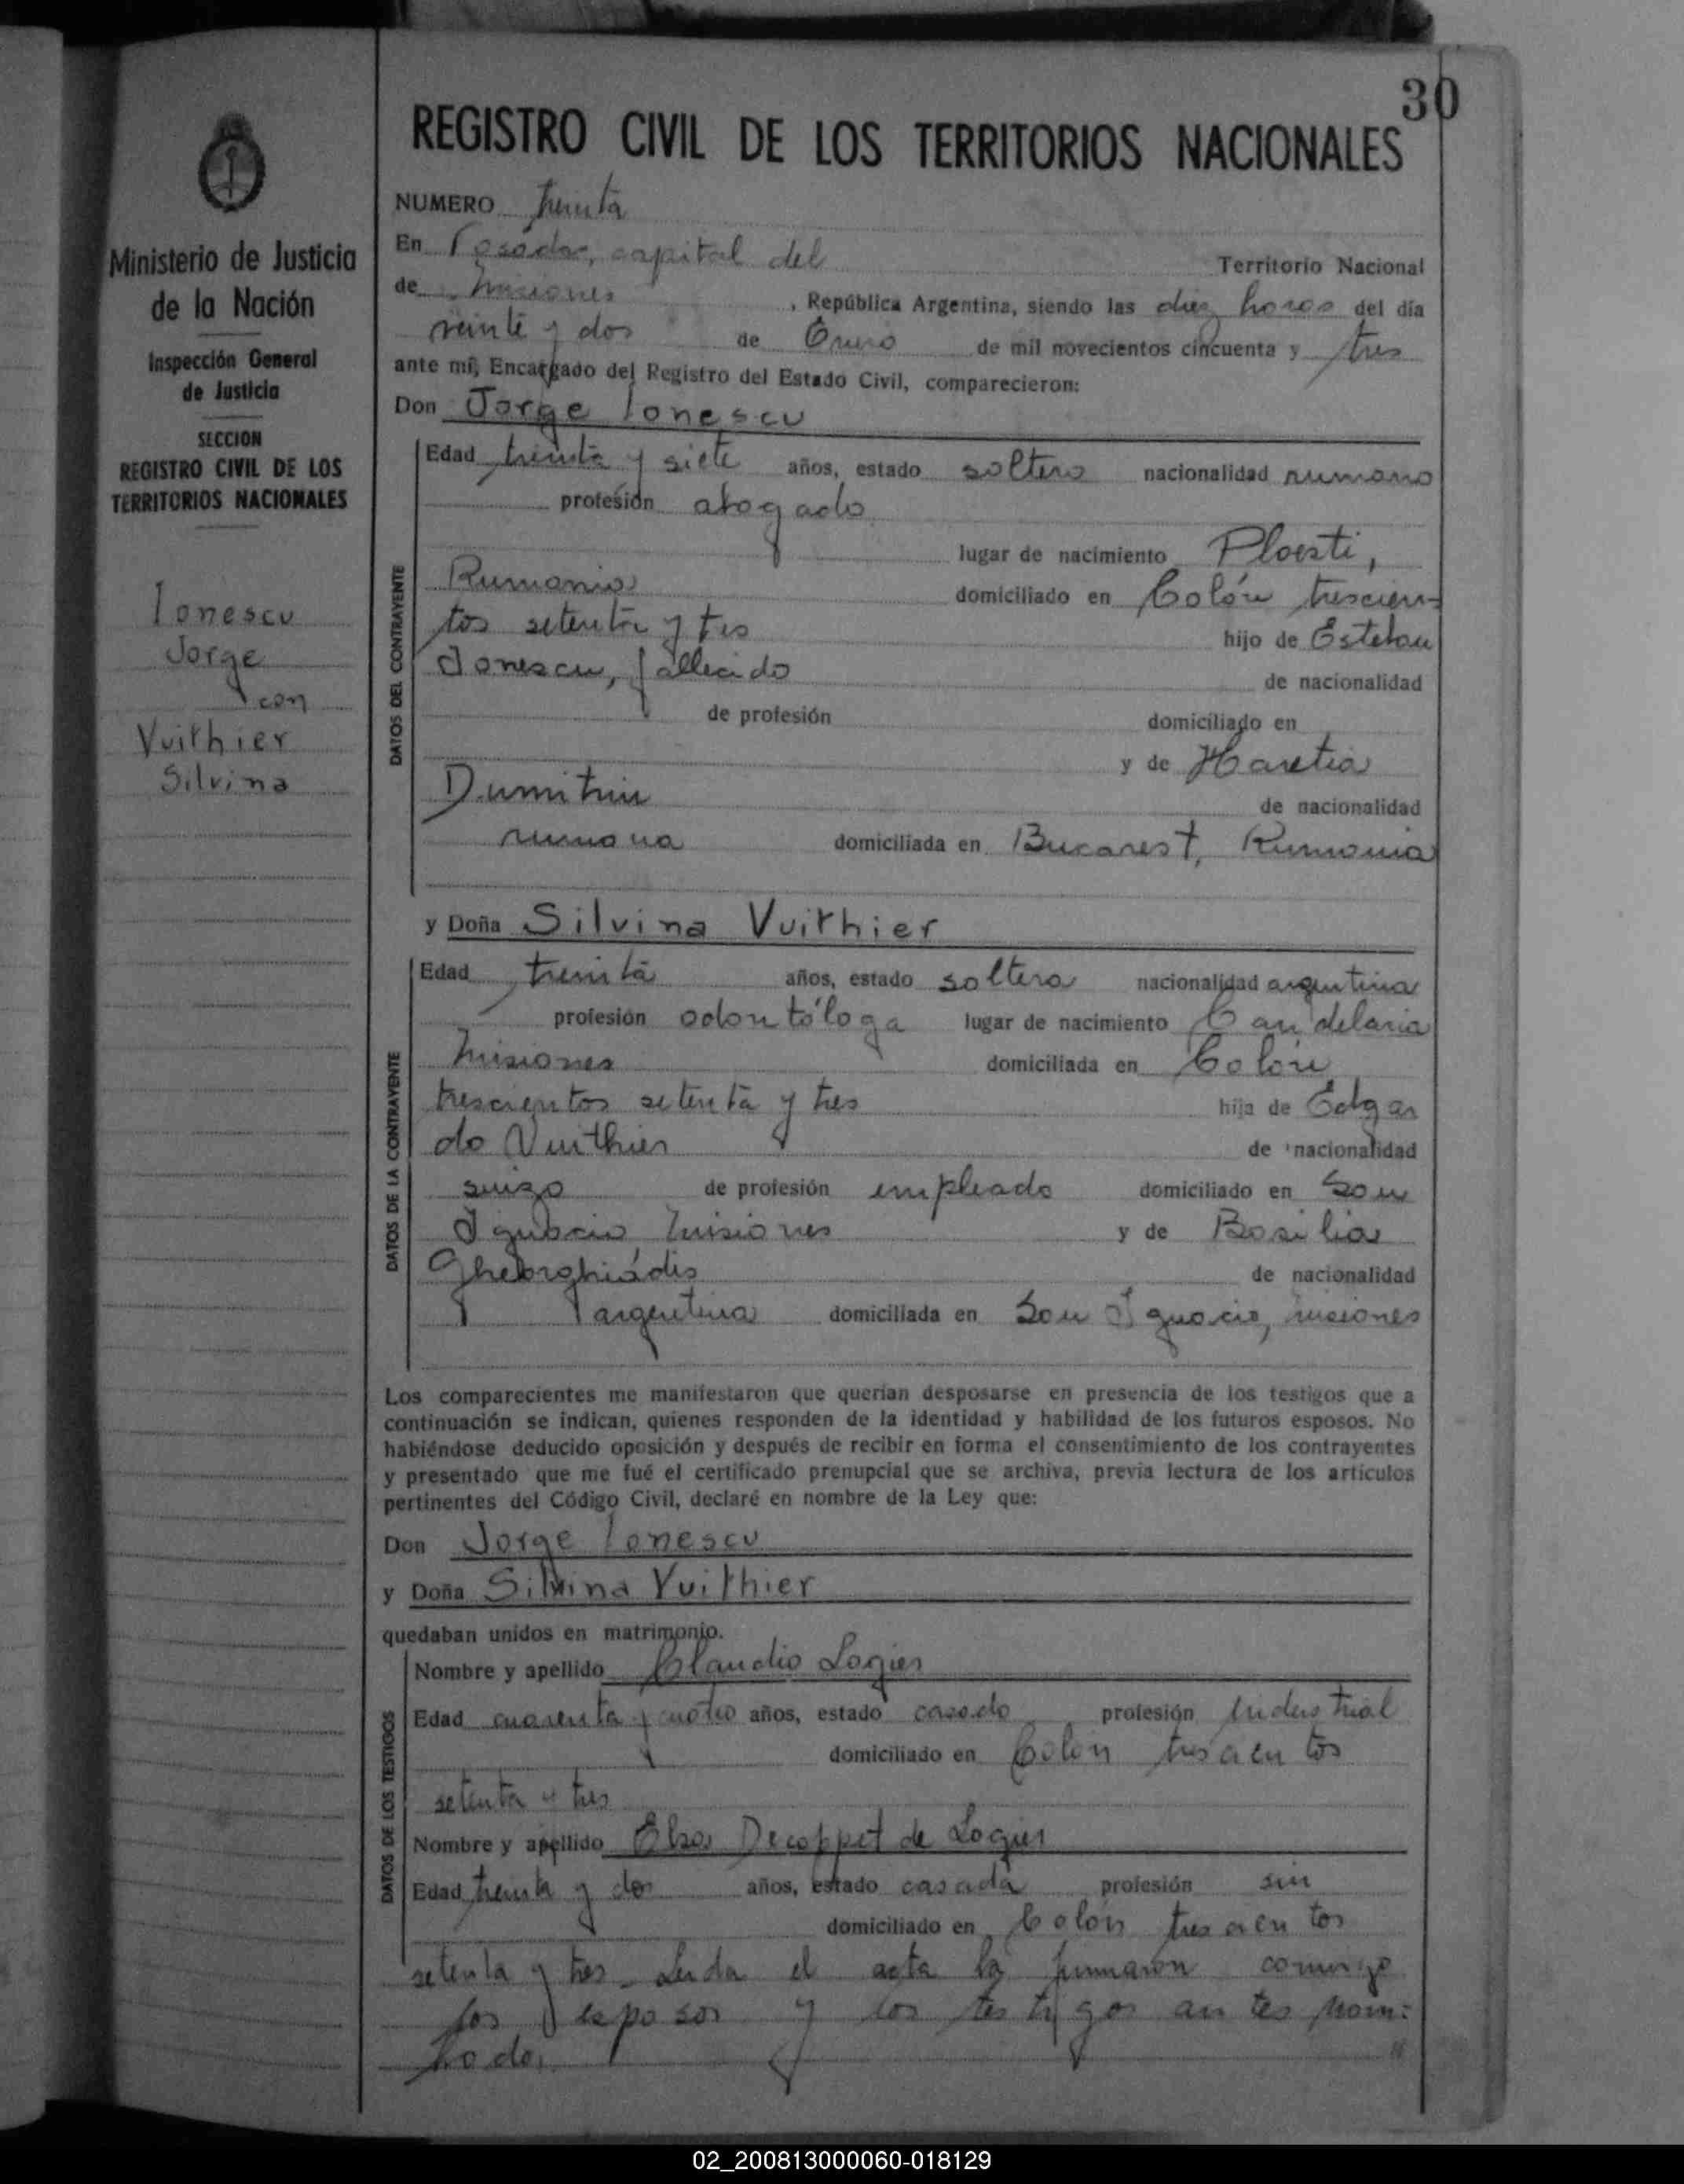 30
REGISTRO CIVIL DE LOS TERRITORIOS NACIONALES
Ministerio de Justicia
de la Nación
Inspección General
de Justicia
SECCION
REGISTRO CIVIL DE LOS
TERRITORIOS NACIONALES
Ionescu
Jorge
con
Vuithier
Silvina
NUMERO treinta
En Posadas, capital del Territorio Nacional
de Misiones, República Argentina, siendo las diez horas del día
veinte y dos de Enero de mil novecientos cincuenta y tres
ante mí, Encargado del Registro del Estado Civil, comparecieron:
Don Jorge Ionescu
DATOS DEL CONTRAYENTE
Edad treinta y siete años, estado soltero nacionalidad rumano
profesión abogado
lugar de nacimiento Ploesti,
Rumania domiciliado en Colón trescien-
tos setenta y tres hijo de Esteban
Ionescu, fallecido de nacionalidad
de profesión domiciliado en
y de Haretia
Dumitriu de nacionalidad
rumana domiciliada en Bucarest, Rumania
y Doña Silvina Vuithier
DATOS DE LA CONTRAYENTE
Edad treinta años, estado soltera nacionalidad argentina
profesión odontóloga lugar de nacimiento Candelaria
Misiones domiciliada en Colón
trescientos setenta y tres hija de Edgar
do Vuithier de nacionalidad
suizo de profesión empleado domiciliado en San
Ignacio, Misiones y de Basilia
Gheorghiádis de nacionalidad
argentina domiciliada en San Ignacio, misiones
Los comparecientes me manifestaron que querían desposarse en presencia de los testigos que a
continuación se indican, quienes responden de la identidad y habilidad de los futuros esposos. No
habiéndose deducido oposición y después de recibir en forma el consentimiento de los contrayentes
y presentado que me fué el certificado prenupcial que se archiva, previa lectura de los artículos
pertinentes del Código Civil, declaré en nombre de la Ley que:
Don Jorge Ionescu
y Doña Silvina Vuithier
quedaban unidos en matrimonio.
DATOS DE LOS TESTIGOS
Nombre y apellido Claudio Logier
Edad cuarenta y cuatro años, estado casado profesión Industrial
domiciliado en Colón trescientos
setenta y tres
Nombre y apellido Elsa Decoppet de Logier
Edad treinta y dos años, estado casada profesión sin
domiciliado en Colón trescientos
setenta y tres. Leída el acta la firmaron conmigo
los esposos y los testigos antes nom=
brados
02_200813000060-018129